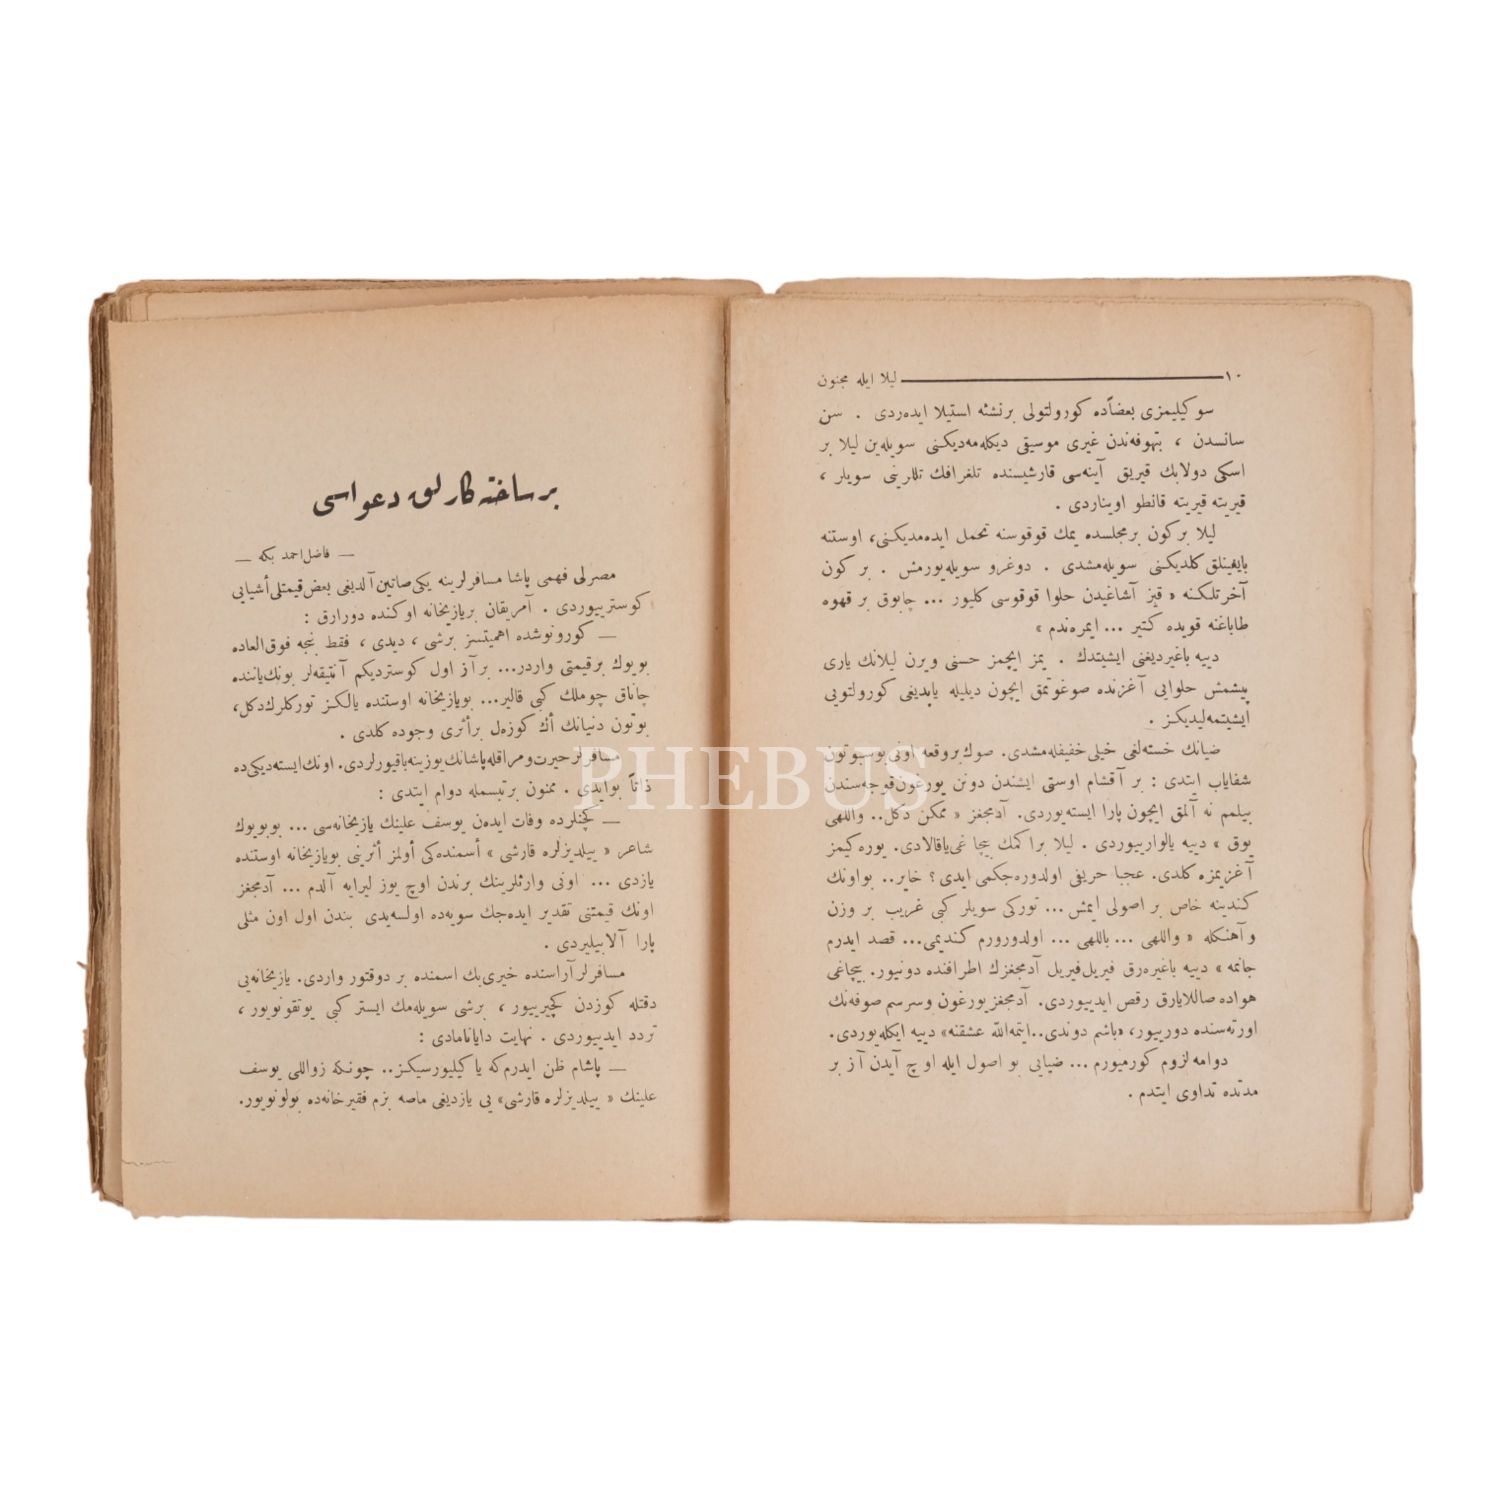 ١٠ ليلا ايله مجنون
سوكيليمزى بعضاًده كورولتولى برنشئه استيلا ايده‌ردى . سن
سانسدن ، بتهوفه‌ندن غيرى موسيقى ديكله‌مه‌ديكنى سويله‌ين ليلا بر
اسكى دولابك قيريق آينه‌سى قارشيسنده تلغرافك تللرينى سويلر ،
قيريته قيريته قانطو اويناردى .
ليلا بركون برمجلسده يمك قوقوسنه تحمل ايده‌مديكنى، اوستنه
بايغينلق كلديكنى سويله‌مشدى . دوغرو سويله‌يورمش . بر كون
آخرتلكنه « قيز آشاغيدن حلوا قوقوسى كليور ... چابوق بر قهوه
طاباغنه قويده كتير ... ايمره‌ندم »
دييه باغيرديغنى ايشيتدك . يمز ايچمز حسنى ويرن ليلانك يارى
پيشمش حلوايى آغزنده صوغوتمق ايچون ديليله ياپديغى كورولتويى
ايشيتمه‌ليديكز .
ضيانك خسته‌لغى خيلى خفيفله‌مشدى. صوك بروقعه اونى بوسبوتون
شفاياب ايتدى : بر آقشام اوستى ايشندن دونن يورغون قوجه‌سندن
بيلمم نه آلمق ايچون پارا ايسته‌يوردى. آدمجغز « ممكن دكل.. واللهى
يوق » دييه يالوارييوردى . ليلا برا كمك بيچاغى ياقالادى. يوره‌كيمز
آغزيمزه كلدى. عجبا حريفى اولدوره‌جكمى ايدى؟ خاير.. بواونك
كندينه خاص بر اصولى ايمش ... توركى سويلر كبى غريب بر وزن
و آهنكله « واللهى ... باللهى ... اولدورورم كنديمى... قصد ايدرم
جانمه » دييه باغيره‌رق فيريل‌فيريل آدمجغزك اطرافنده دونيور. بيچاغى
هواده صاللايارق رقص ايدييوردى. آدمجغز يورغون وسرسم صوفه‌نك
اورته‌سنده دورييور، «باشم دوندى..ايتمه‌الله عشقنه» دييه ايكله‌يوردى.
دوامه لزوم كورميورم ... ضيايى بو اصول ايله اوچ آيدن آز بر
مدتده تداوى ايتدم .
بر ساخته كارلق دعواسى
— فاضل احمد بكه —
مصرلى فهمى پاشا مسافرلرينه يكى صاتين آلديغى بعض قيمتلى أشيايى
كوسترييوردى . آمريقان بريازيخانه اوكنده دورارق :
— كورونوشده اهميتسز برشى ، ديدى ، فقط نجه فوق العاده
بويوك برقيمتى واردر... بر آز اول كوسترديكم آنتيقه‌لر بونك ياننده
چاناق چوملك كبى قالير... بويازيخانه اوستنده يالكز توركلرك دكل،
بوتون دنيانك أك كوزه‌ل برأثرى وجوده كلدى .
مسافرلر حيرت ومراقله پاشانك يوزينه باقيورلردى. اونك ايسته‌ديكى ده
ذاتاً بوايدى . ممنون برتبسمله دوام ايتدى :
— كچنلرده وفات ايده‌ن يوسف علينك يازيخانه‌سى ... بوبويوك
شاعر « ييلديزلره قارشى » أسمنده‌كى أولمز أثرينى بويازيخانه اوستنده
يازدى ... اونى وارثلرينك برندن اوچ يوز ليرايه آلدم ... آدمجغز
اونك قيمتنى تقدير ايده‌جك سويه‌ده اولسه‌يدى بندن اول اون مثلى
پارا آلابيليردى .
مسافرلر آراسنده خيرى‌بك اسمنده بر دوقتور واردى. يازيخانه‌يى
دقتله كوزدن كچيرييور ، برشى سويله‌مك ايستر كبى يوتقونويور ،
تردد ايدييوردى . نهايت دايانامادى :
— پاشام ظن ايدرم‌كه ياكيليورسيكز.. چونكه زواللى يوسف
علينك « ييلديزلره قارشى» يى يازديغى ماصه بزم فقيرخانه‌ده بولونويور.
PHEBUS